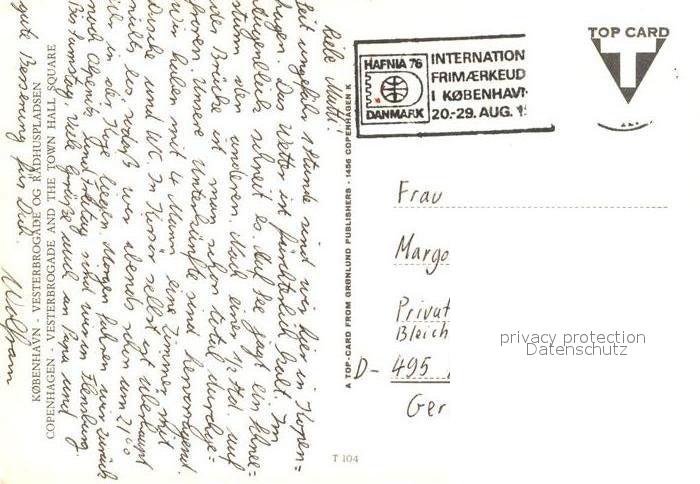 Liebe Mutti!
Seit ungefähr 1 Stunde sind wir hier in Kopen=
hagen. Das Wetter ist fürchterlich kalt. Im
Augenblick schneit es. Auf See jagt ein Schnee=
sturm den anderen. Nach einer 1/2 Std. auf
der Brücke ist man schon total durchge=
froren. Unsere Unterkünfte sind hervorragend.
Wir haben mit 4 Mann eine Zimmer mit
Dusche und WC. In Korsör selbst ist überhaupt
nichts los, sodaß wir abends schon um 21⁰⁰
in der Koje liegen. Morgen fahren wir zurück
nach
und Freitag sind wir in Flensburg.
Bis Samstag. Viele Grüße auch an Papa und
gute Besserung für Dich.
Wolfram
KØBENHAVN - VESTERBROGADE OG RÅDHUSPLADSEN
COPENHAGEN - VESTERBROGADE AND THE TOWN HALL SQUARE
A TOP-CARD FROM GRØNLUND PUBLISHERS - 1456 COPENHAGEN K
T 104
HAFNIA 76
DANMARK
INTERNATION
FRIMÆRKEUD
I KØBENHAVN
20.-29. AUG. 1
TOP CARD
T
Frau
Margo
Privat
Bleich
D- 495
Ger
privacy protection
Datenschutz